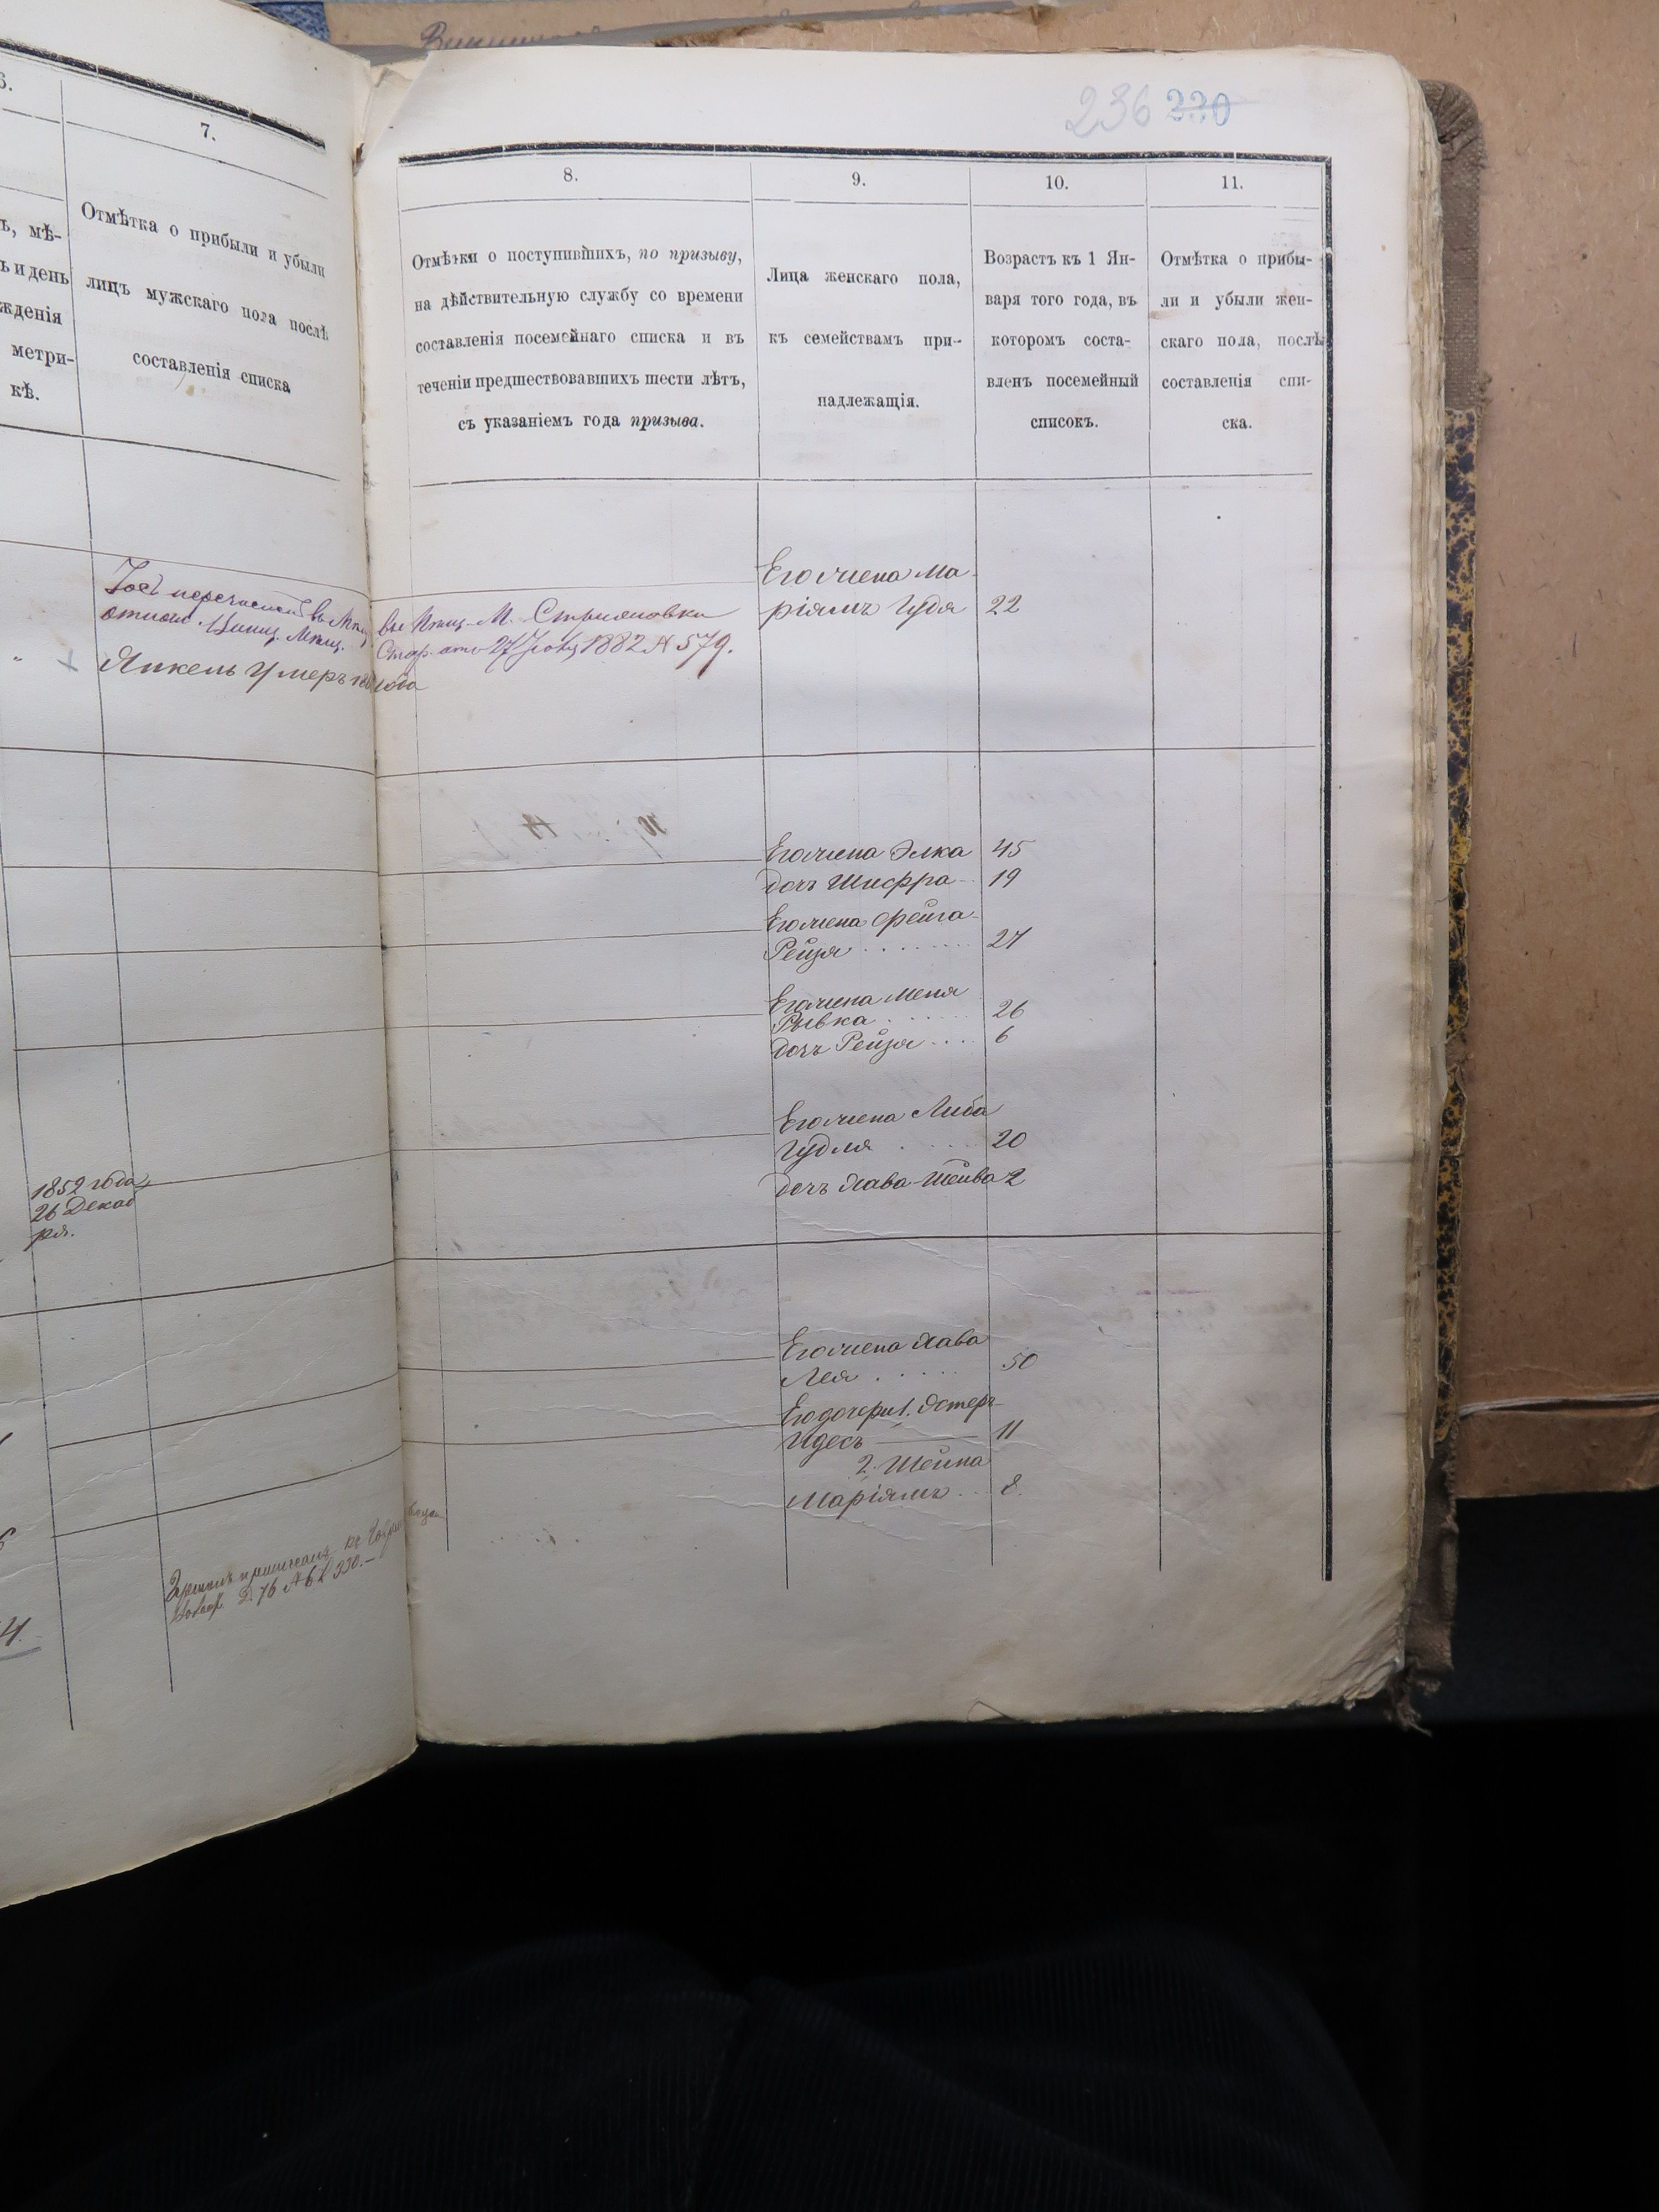 236 220
6.
7.
ъ, мѣ-
ъ и день
жденія
метри-
кѣ.
Отмѣтка о прибыли и убыли
лицъ мужскаго пола послѣ
составленія списка
8.
9.
10.
11.
Отмѣтки о поступившихъ, по призыву,
на дѣйствительную службу со времени
составленія посемейнаго списка и въ
теченіи предшествовавшихъ шести лѣтъ,
съ указаніемъ года призыва.
Лица женскаго пола,
къ семействамъ при-
надлежащія.
Возрастъ къ 1 Ян-
варя того года, въ
которомъ соста-
вленъ посемейный
списокъ.
Отмѣтка о прибы-
ли и убыли жен-
скаго пола, послѣ
составленія спи-
ска.
Янкель умеръ
года
1882 № 579.
Его жена Ма-
ріямъ Гудя 22
Его жена Элка 45
дочь Шифра 19
Его жена Фейга-
Рейзя 27
Его жена Меня
Рывка 26
дочь Рейзя 6
Его жена Либа
Гудля 20
дочь Хава-Шейва 2
1852 года
26 Декаб
ря.
Его жена Хава
Лея 50
Его дочери 1. Эстеръ-
Идесъ 11
2. Шейна
Маріямъ 8.